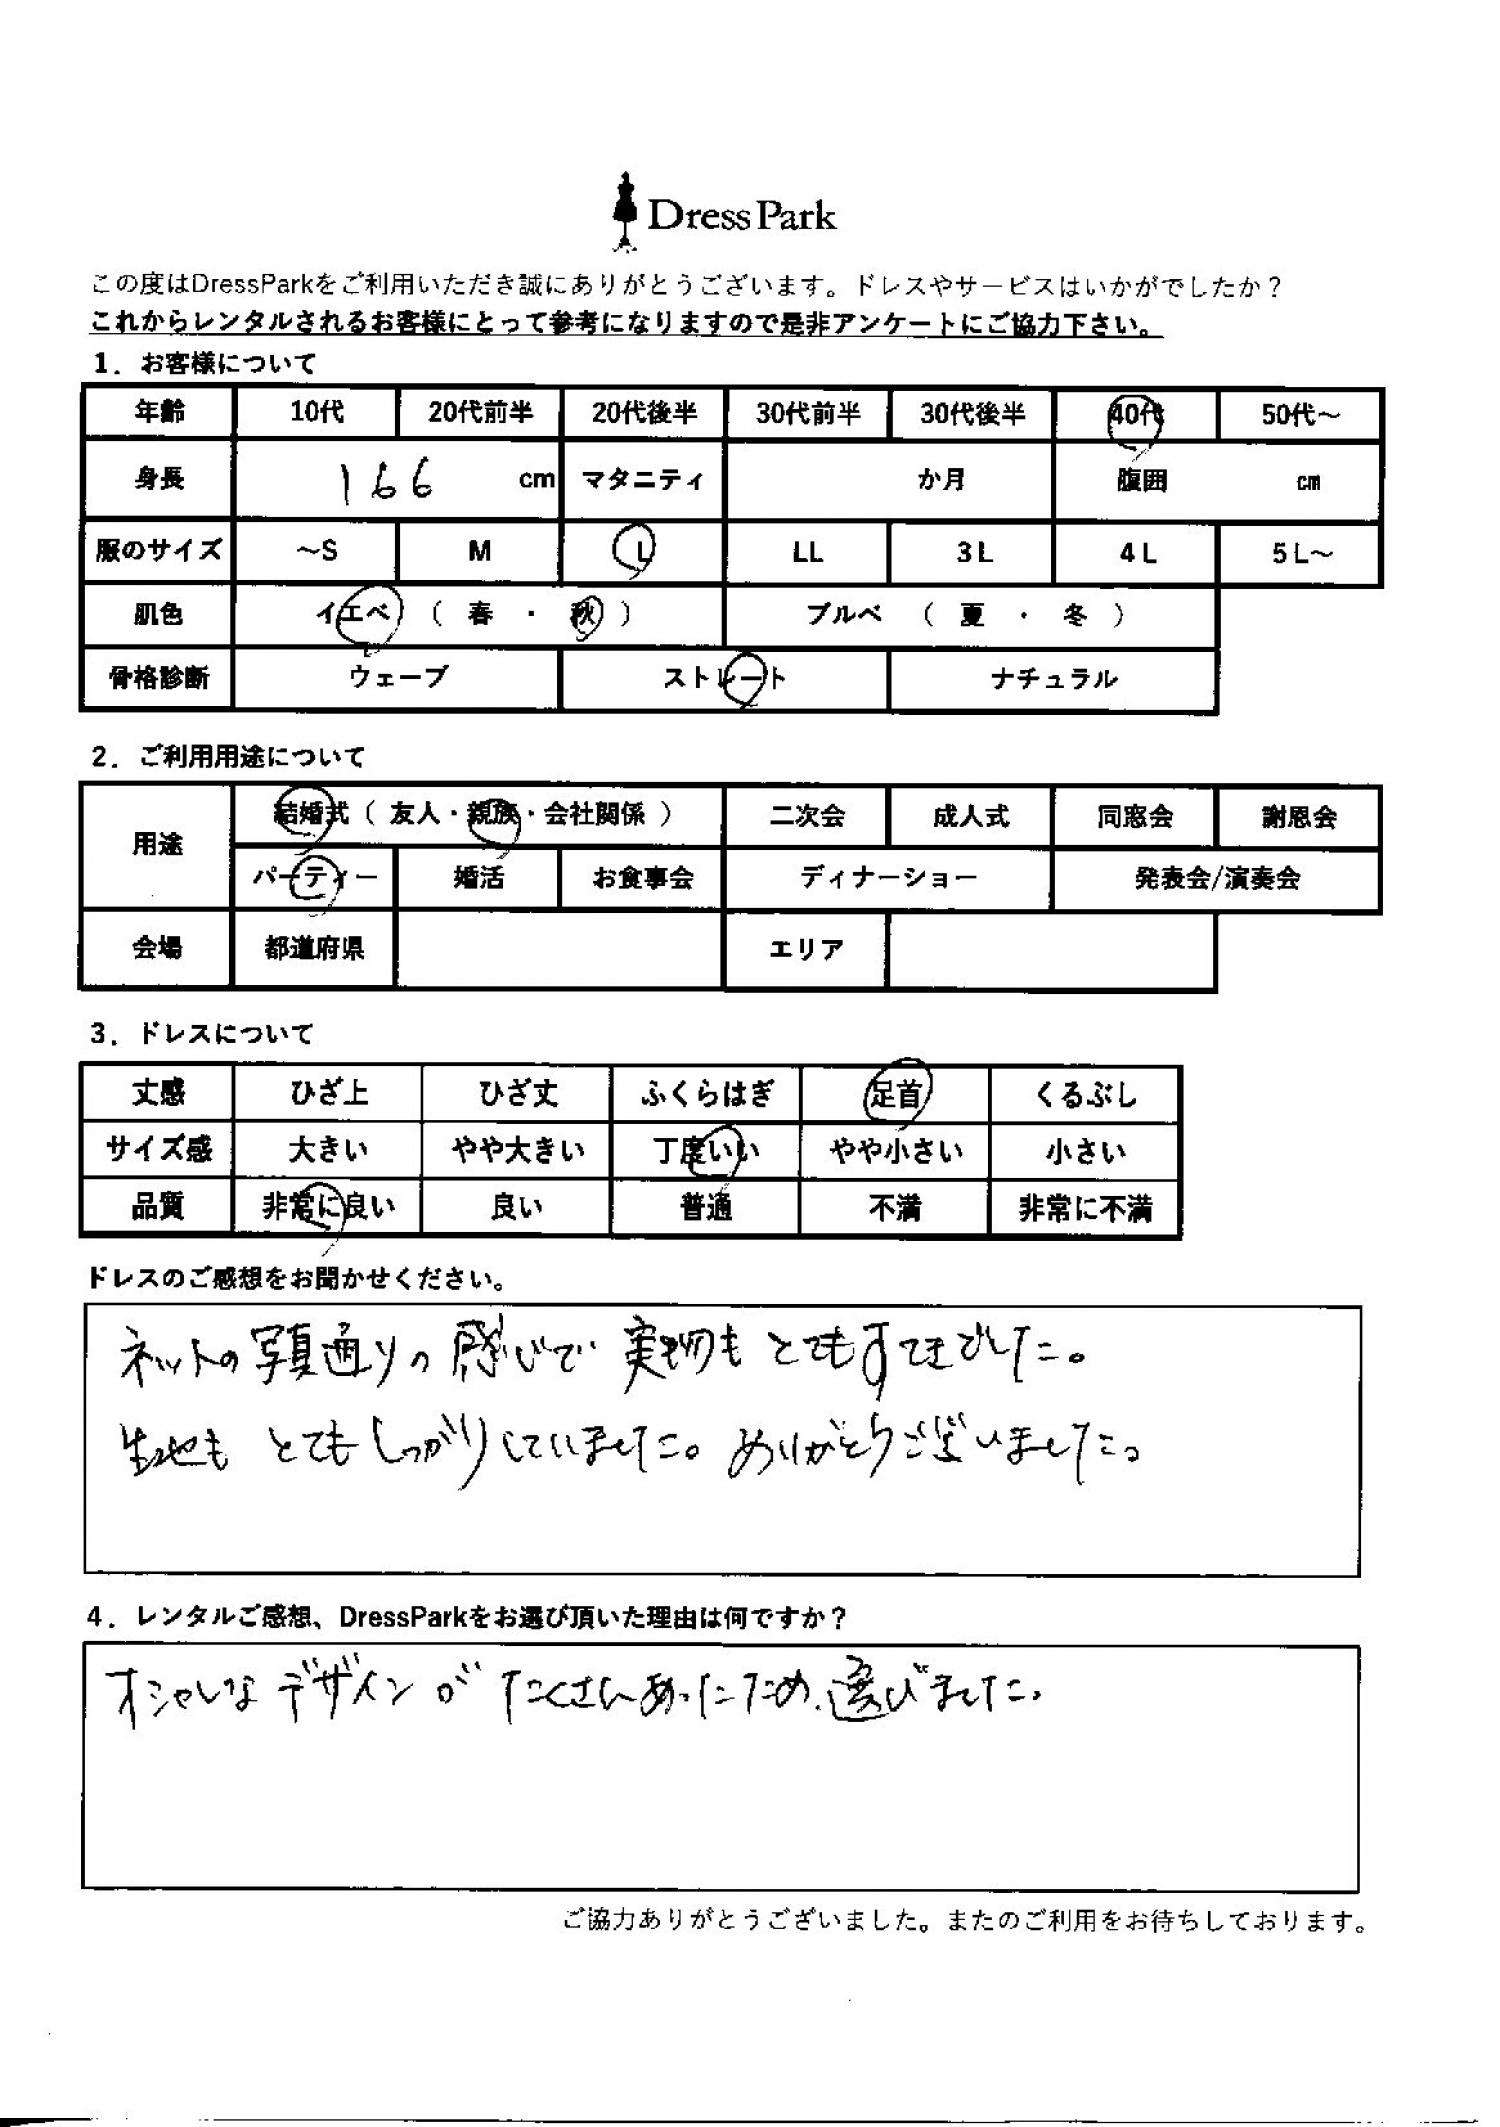 Dress Park
この度はDressParkをご利用いただき誠にありがとうございます。ドレスやサービスはいかがでしたか？
これからレンタルされるお客様にとって参考になりますので是非アンケートにご協力下さい。
1．お客様について
年齢 10代 20代前半 20代後半 30代前半 30代後半 40代 50代～
身長 166 cm マタニティ か月 腹囲 cm
服のサイズ ～S M L LL 3L 4L 5L～
肌色 イエベ （ 春 ・ 秋 ） ブルベ （ 夏 ・ 冬 ）
骨格診断 ウェーブ ストレート ナチュラル
2．ご利用用途について
用途 結婚式（ 友人・親族・会社関係 ） 二次会 成人式 同窓会 謝恩会
パーティー 婚活 お食事会 ディナーショー 発表会/演奏会
会場 都道府県 エリア
3．ドレスについて
丈感 ひざ上 ひざ丈 ふくらはぎ 足首 くるぶし
サイズ感 大きい やや大きい 丁度いい やや小さい 小さい
品質 非常に良い 良い 普通 不満 非常に不満
ドレスのご感想をお聞かせください。
ネットの写真通りの感じで 実物も とてもすてきでした。
生地も とてもしっかりしていました。ありがとうございました。
4．レンタルご感想、DressParkをお選び頂いた理由は何ですか？
オシャレな デザインが たくさんあったため、選びました。
ご協力ありがとうございました。またのご利用をお待ちしております。